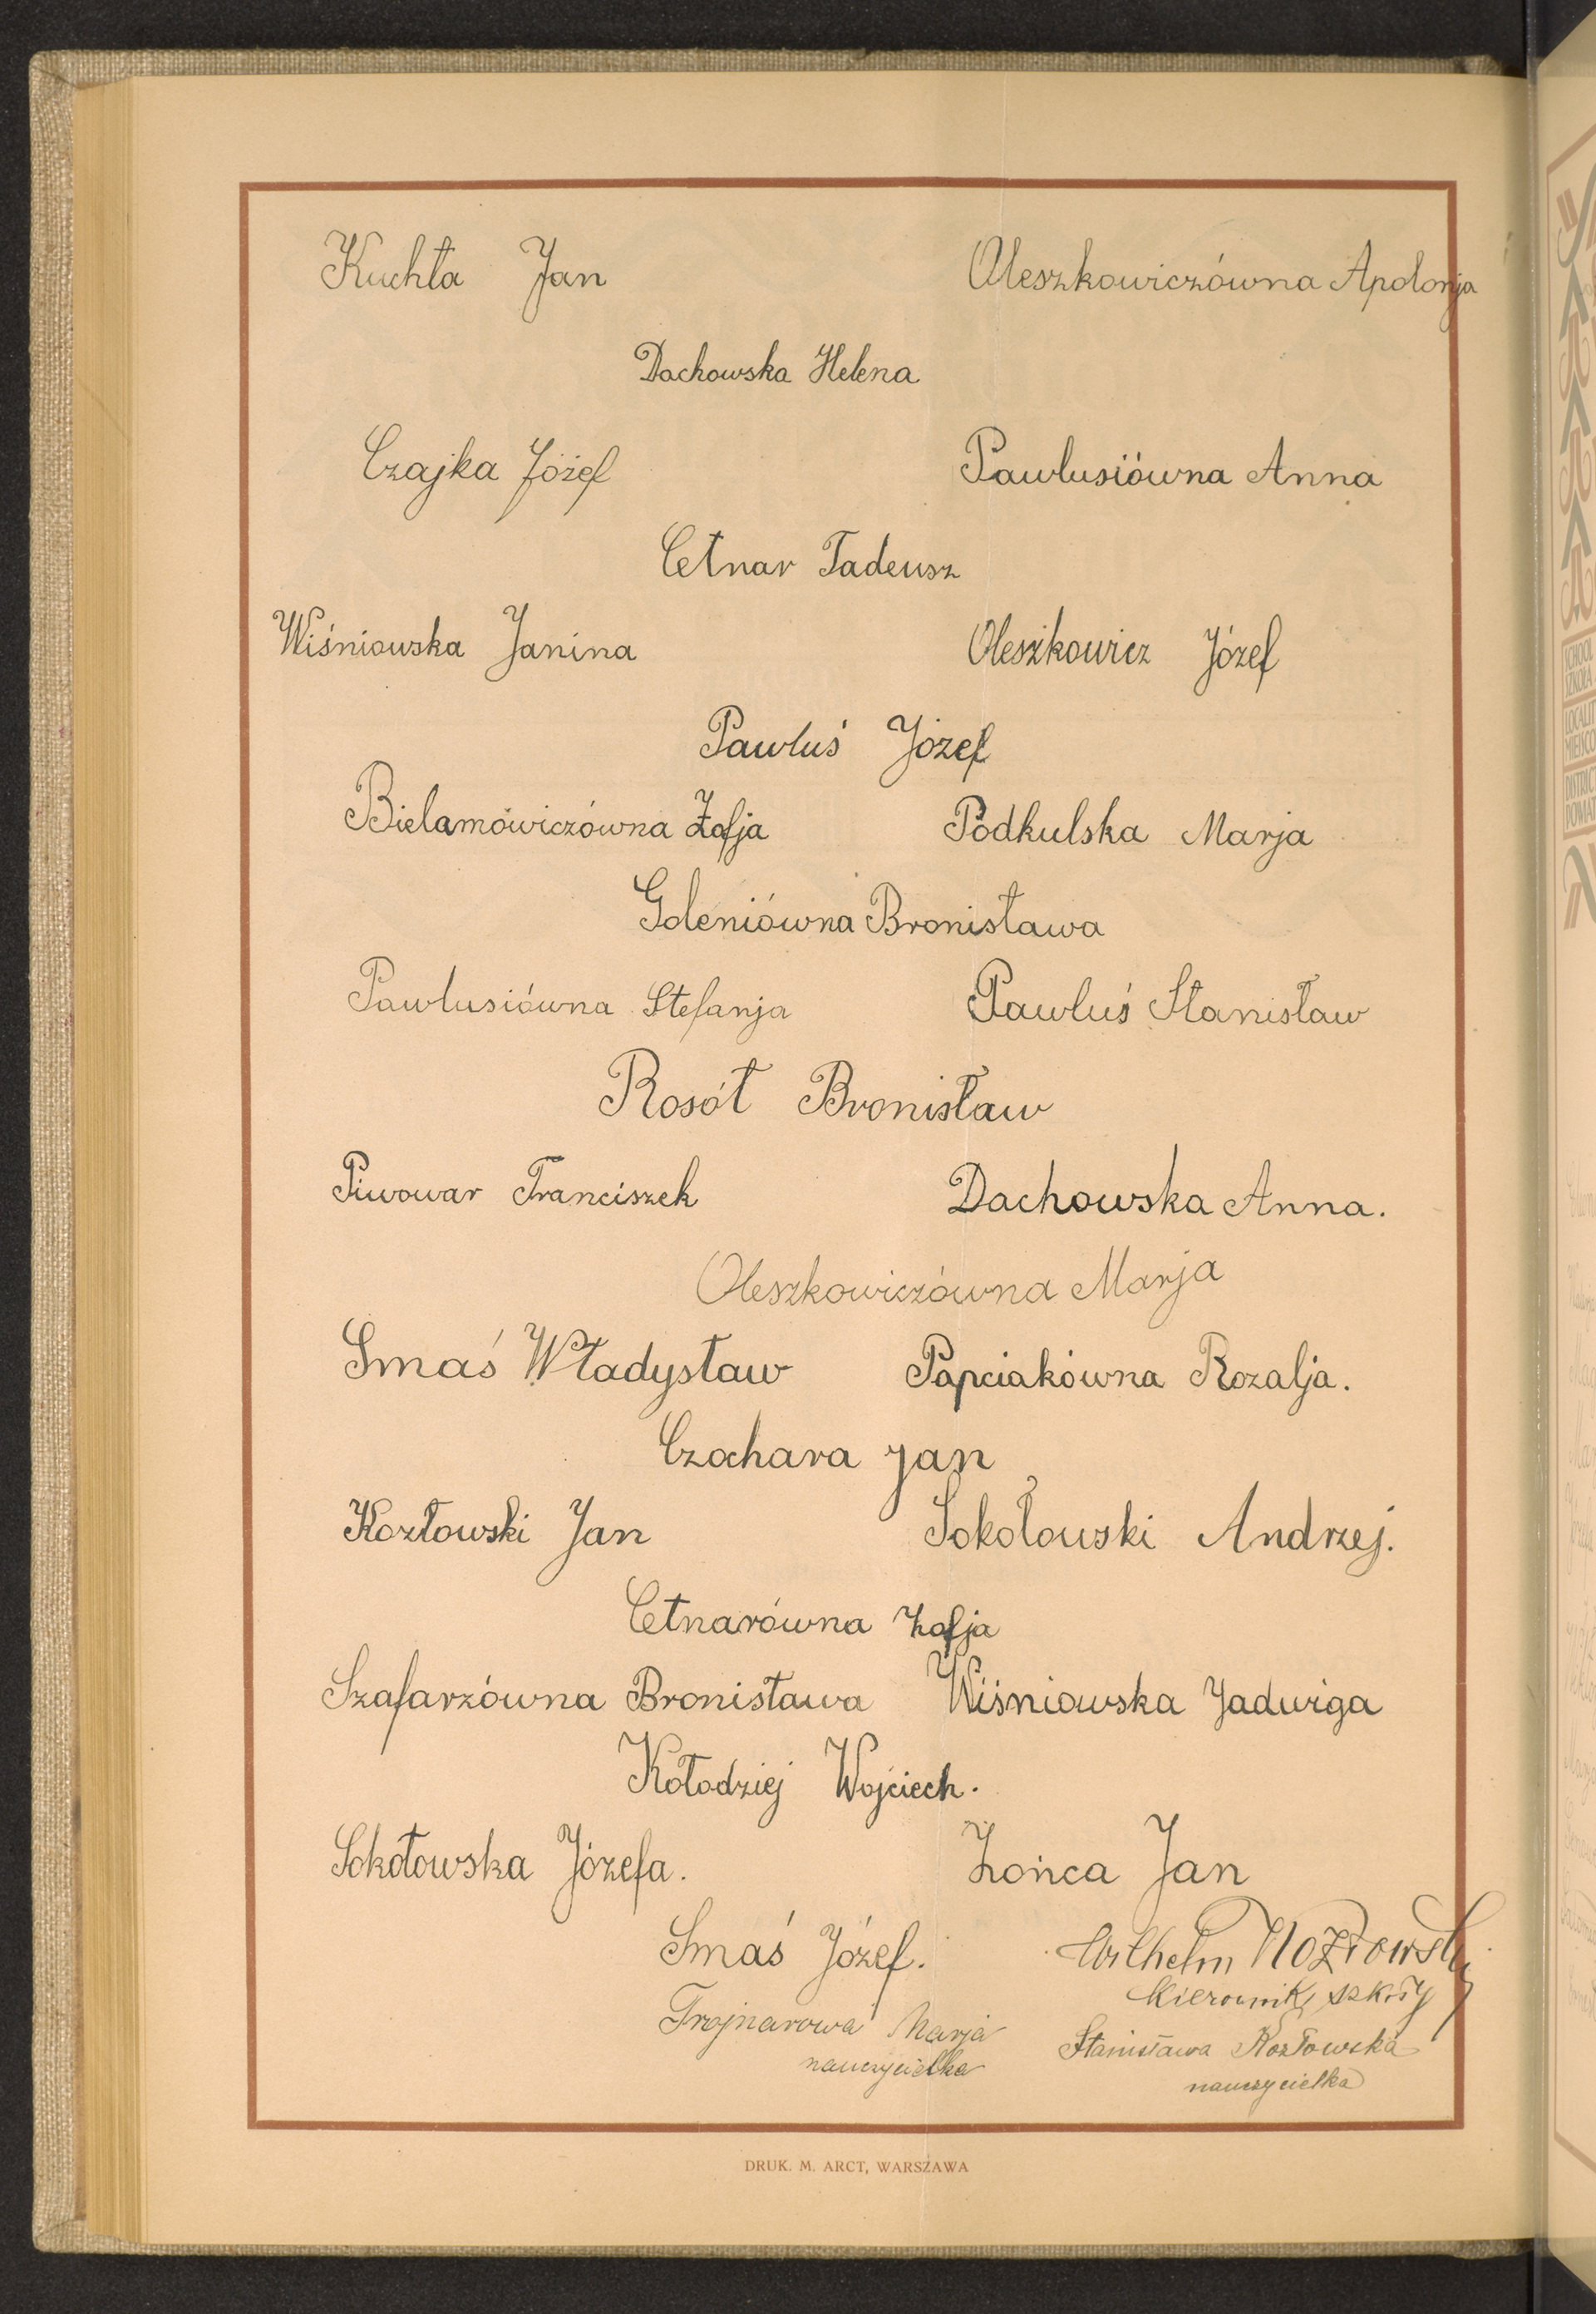 Kuchta Jan
Oleszkowiczówna Apolonja
Dachowska Helena
Czajka Józef
Pawlusiówna Anna
Cetnar Tadeusz
Wiśniowska Janina
Oleszkowicz Józef
Pawluś Józef
Bielamowiczówna Zofja
Podkulska Marja
Goleniówna Bronisława
Pawlusiówna Stefanja
Pawluś Stanisław
Rosół Bronisław
Piwowar Franciszek
Dachowska Anna.
Oleszkowiczówna Marja
Smaś Władysław
Papciakówna Rozalja.
Czochara Jan
Kozłowski Jan
Sokołowski Andrzej.
Cetnarówna Zofja
Szafarzówna Bronisława
Wiśniowska Jadwiga
Kołodziej Wojciech.
Sokołowska Józefa.
Zońca Jan
Smaś Józef.
Wilhelm Kozłowski
kierownik szkoły
Trojnarowa Marja
nauczycielka
Stanisława Kozłowska
nauczycielka
DRUK. M. ARCT, WARSZAWA
SCHOOL
SZKOŁA